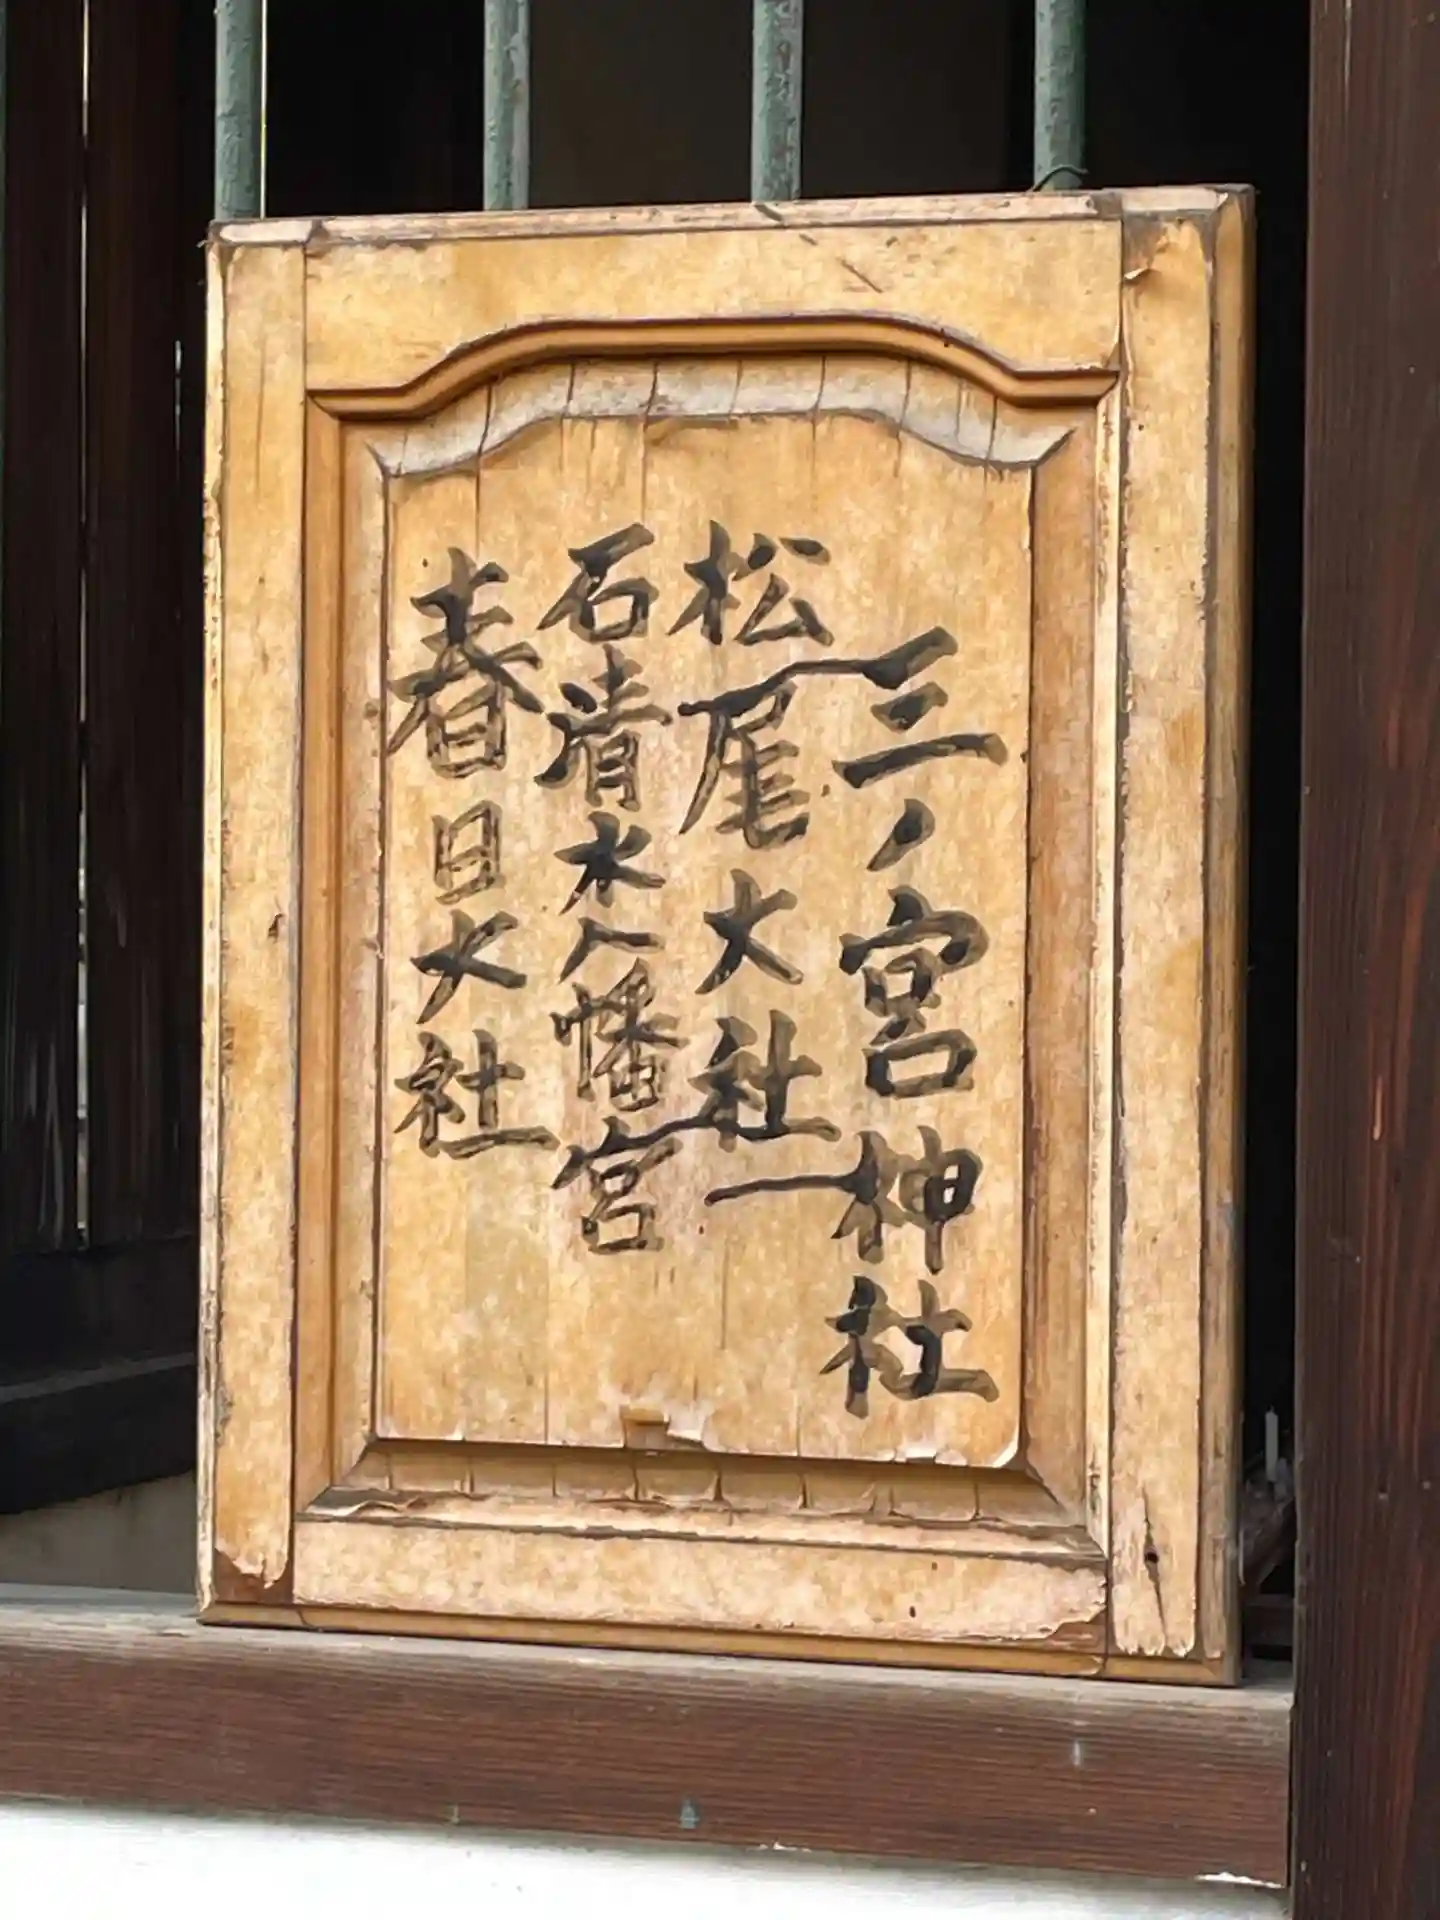 三ノ宮神社
松尾大社
石清水八幡宮
春日大社